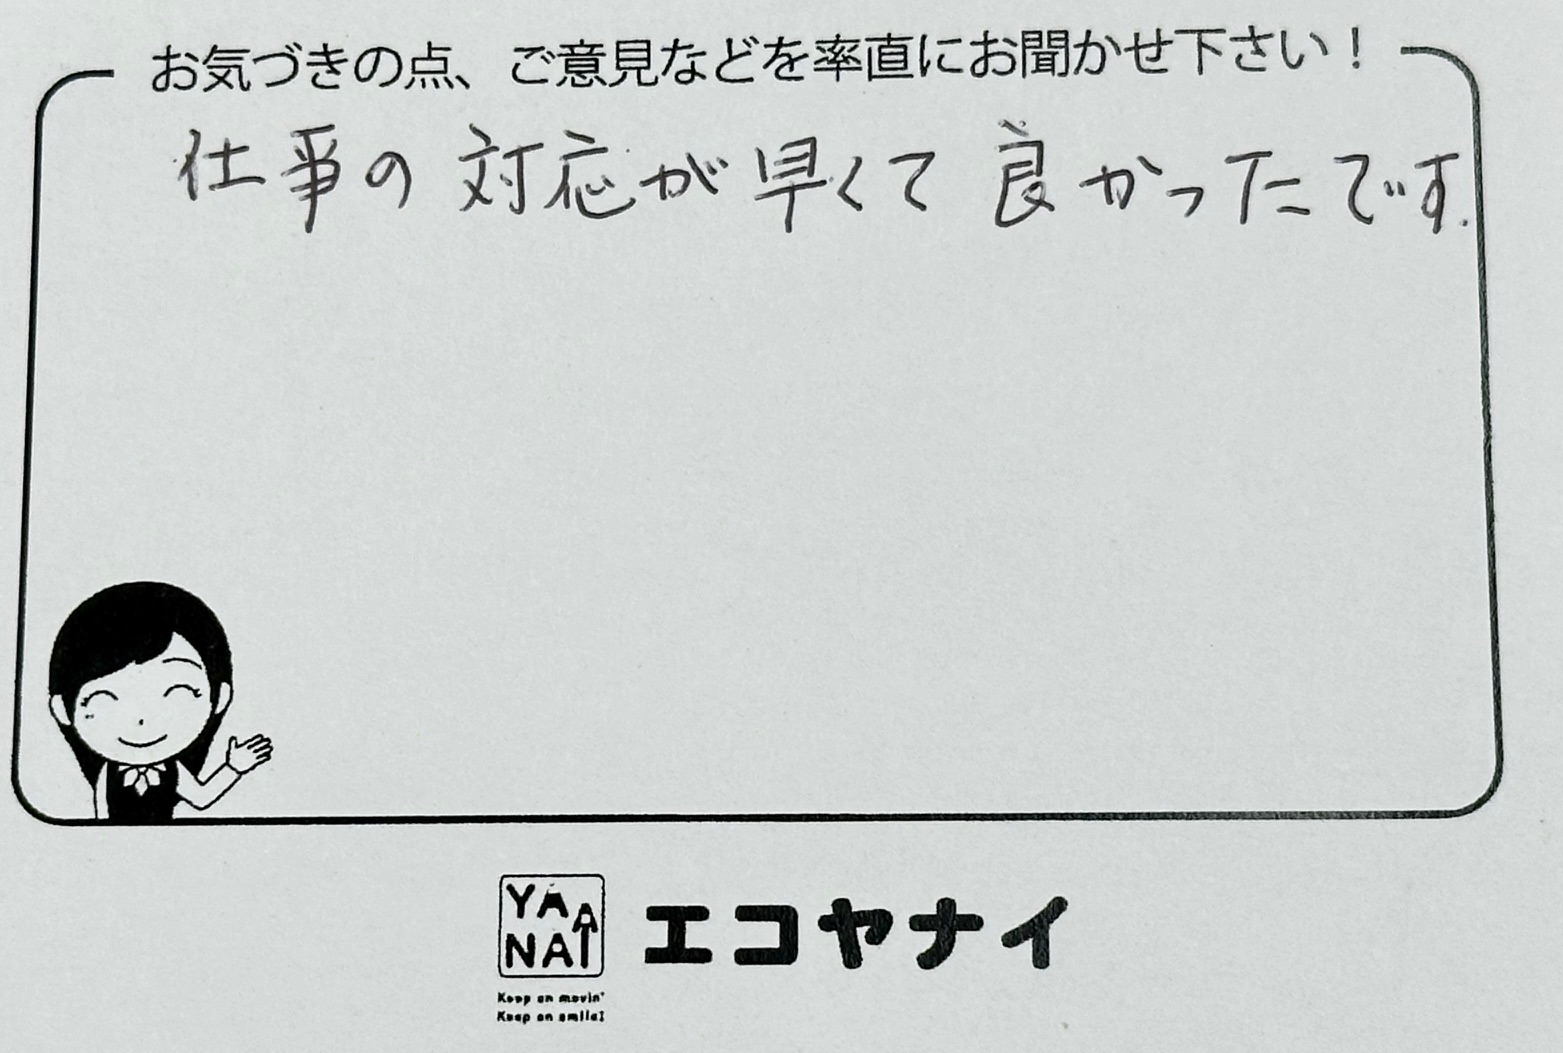 お気づきの点、ご意見などを率直にお聞かせ下さい！
仕事の対応が早くて良かったです.
YAANAI
エコヤナイ
Keep on movin'
Keep on smile!